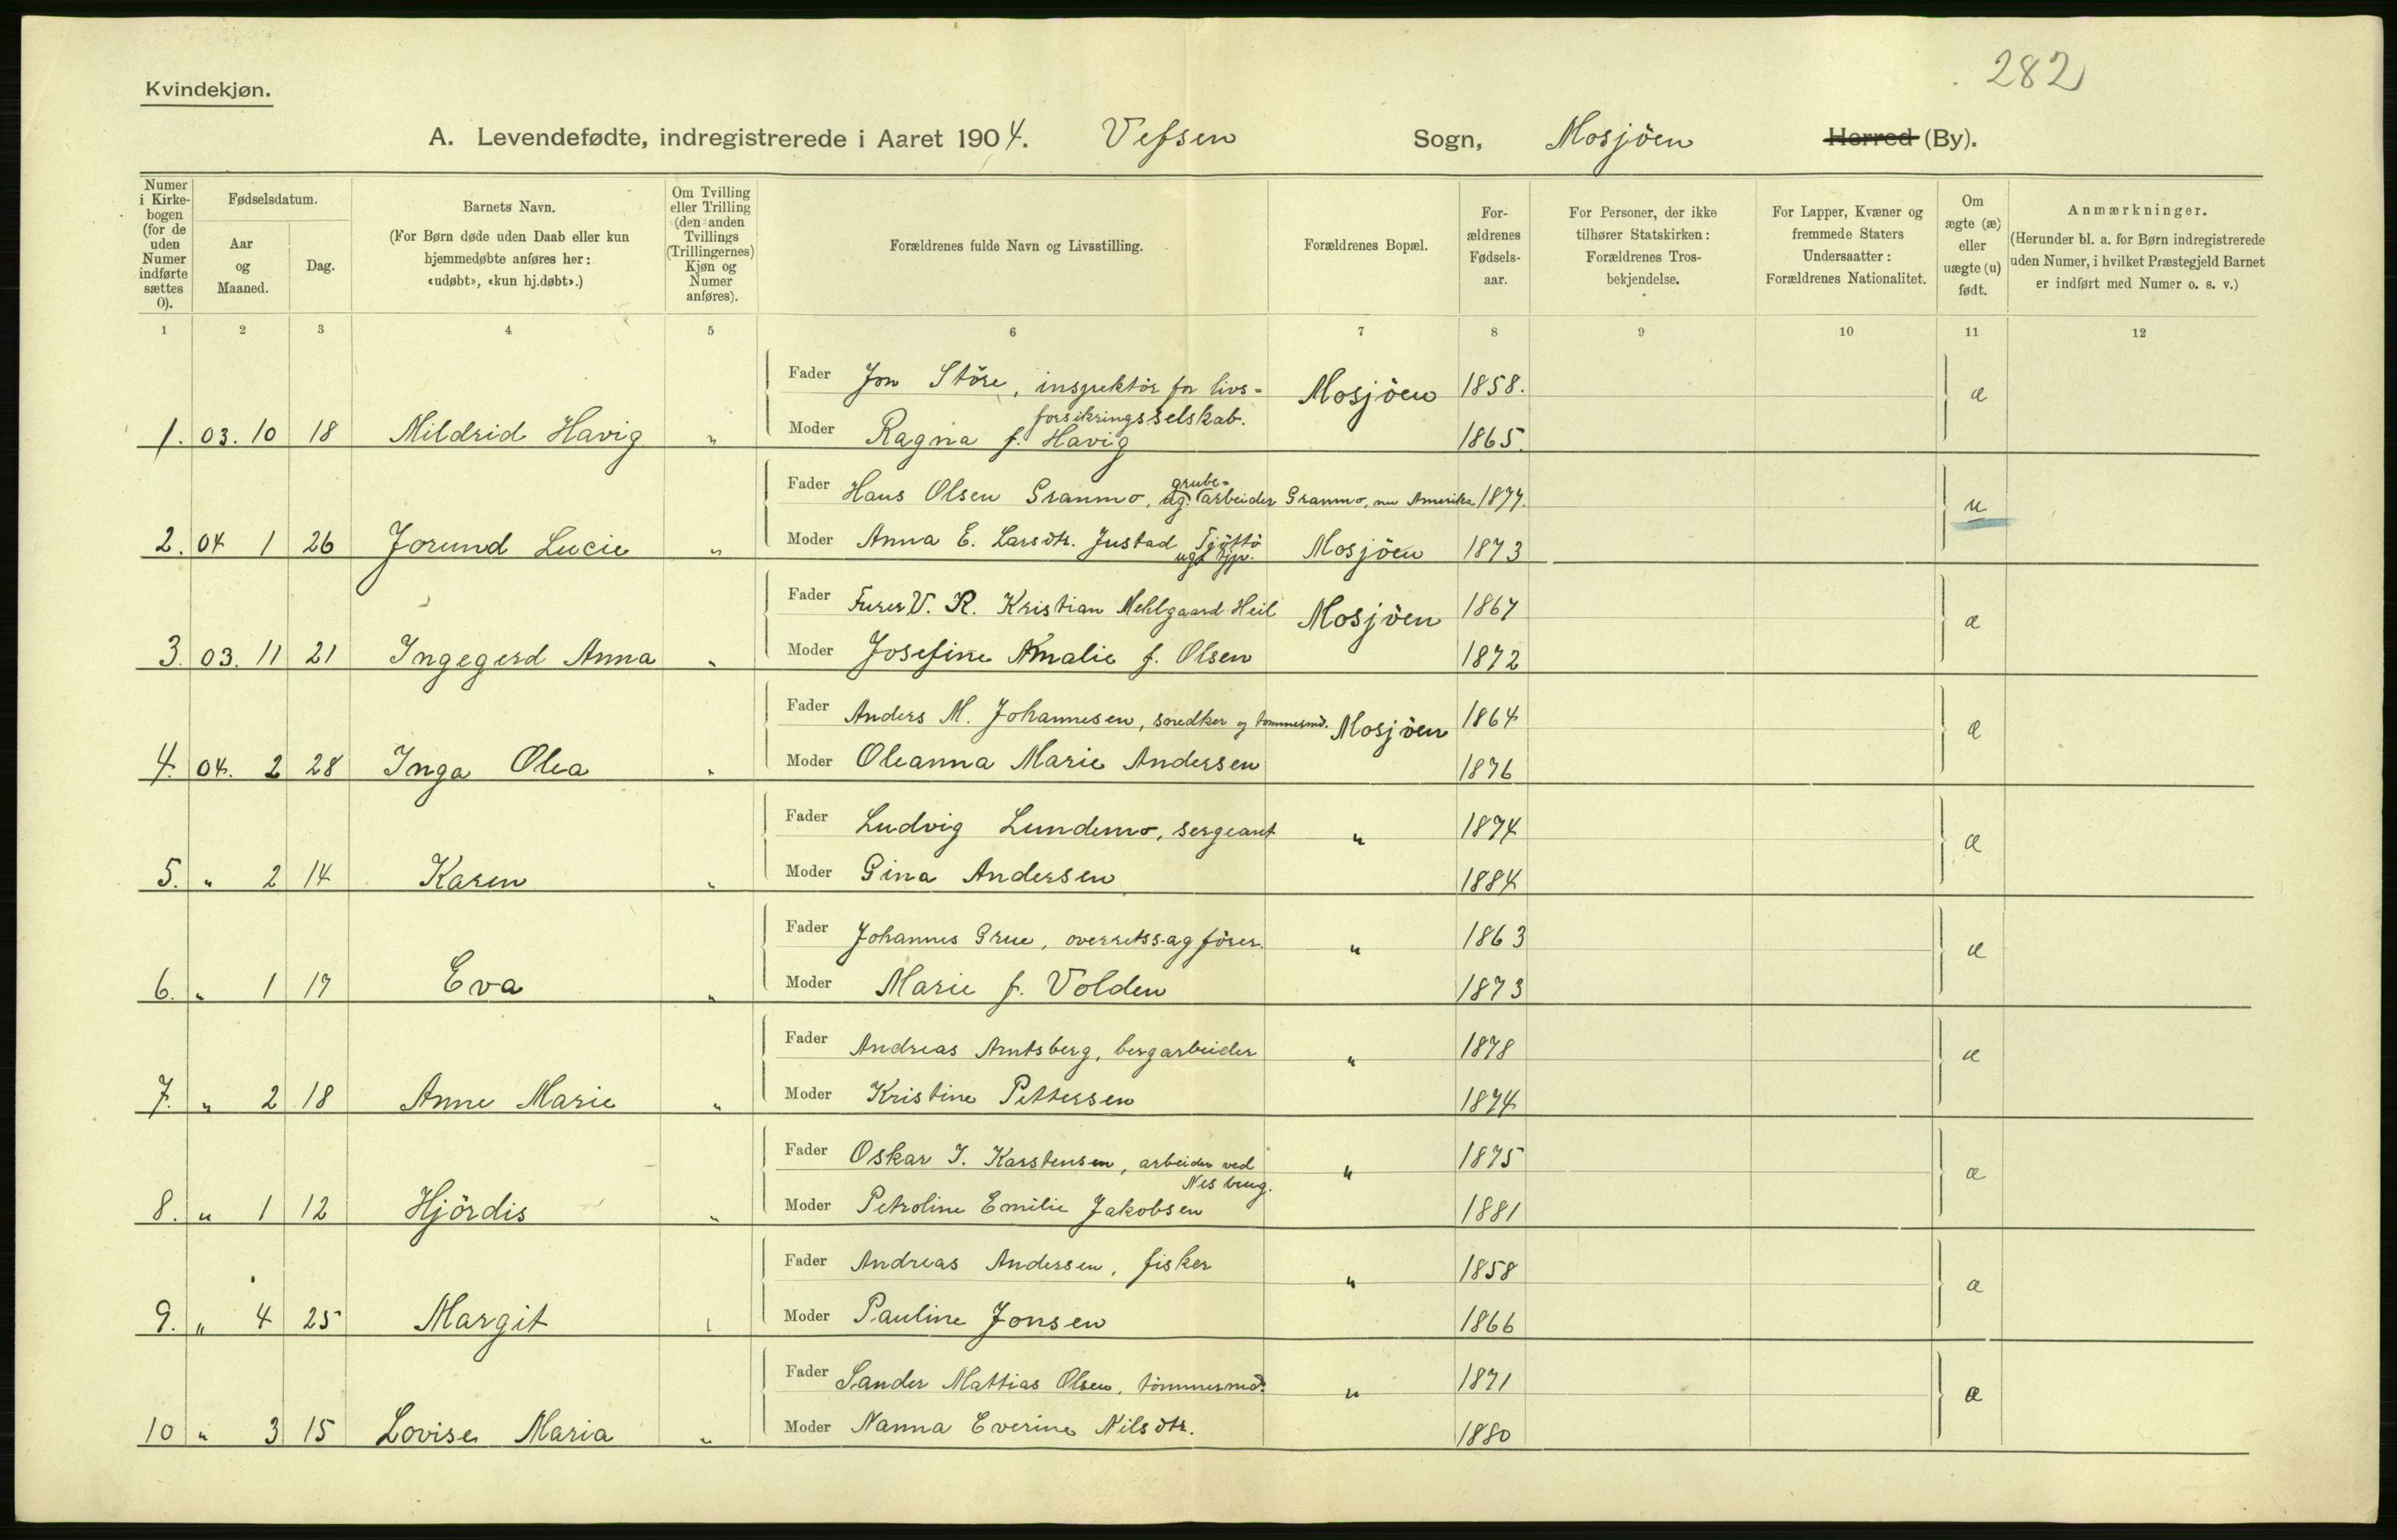 282
Kvindekjøn.
A. Levendefødte, indregistrerede i Aaret 1904. Vefsen Sogn, Mosjöen Herred (By).
Numer i Kirkebogen (for de uden Numer indførte sættes 0).
Fødselsdatum.
Aar og Maaned.
Dag.
Barnets Navn.
(For Børn døde uden Daab eller kun hjemmedøbte anføres her: «udøbt», «kun hj.døbt».)
Om Tvilling eller Trilling (den anden Tvillings (Trillingernes) Kjøn og Numer anføres).
Forældrenes fulde Navn og Livsstilling.
Forældrenes Bopæl.
Forældrenes Fødselsaar.
For Personer, der ikke tilhører Statskirken: Forældrenes Trosbekjendelse.
For Lapper, Kvæner og fremmede Staters Undersaatter: Forældrenes Nationalitet.
Om ægte (æ) eller uægte (u) født.
Anmærkninger.
(Herunder bl. a. for Børn indregistrerede uden Numer, i hvilket Præstegjeld Barnet er indført med Numer o. s. v.)
1 2 3 4 5 6 7 8 9 10 11 12
Fader Jon Störe, inspektör for livs= Mosjöen 1858. æ
forsikringsselskab.
1. 03. 10 18 Mildrid Havig " Moder Ragna f. Havig 1865.
Fader Hans Olsen Granmo, ug. grube= arbeider Granmo, nu Amerika 1877. u
2. 04 1 26 Jorund Lucie " Moder Anna E. Larsdtr. Justad Tjöttö Mosjöen 1873
ugt tjp.
Fader Furer V. K. Kristian Mehlgaard Heil Mosjöen 1867 æ
3. 03. 11 21 Ingegerd Anna " Moder Josefine Amalie f. Olsen 1872
Fader Anders M. Johannesen, snedker og tömmermd. Mosjöen 1864 æ
4. 04. 2 28 Inga Olea " Moder Oleanna Marie Andersen 1876
Fader Ludvig Lundemo, sergeant " 1874 æ
5. " 2 14 Karen " Moder Gina Andersen 1884
Fader Johannes Grue, overretssagförer. " 1863 æ
6. " 1 17 Eva " Moder Marie f. Volden 1873
Fader Andreas Arntsberg, bergarbeider " 1878 æ
7. " 2 18 Anne Marie " Moder Kristine Pettersen 1874
Fader Oskar J. Karstensen, arbeider ved " 1875 æ
Nes brug.
8. " 1 12 Hjördis " Moder Petroline Emilie Jakobsen 1881
Fader Andreas Andersen, fisker " 1858 æ
9. " 4 25 Margit " Moder Pauline Jonsen 1866
Fader Sander Mattias Olsen, tömmermd. " 1871 æ
10 " 3 15 Lovise Maria " Moder Nanna Everine Nilsdtr. 1880